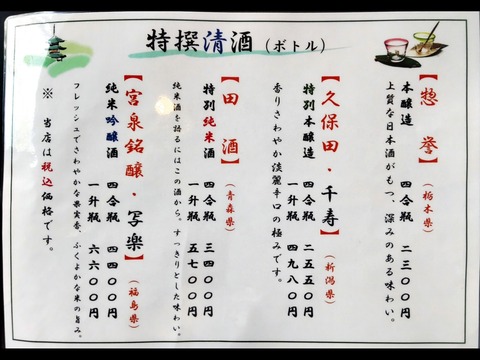 特撰清酒（ボトル）
【惣誉】（栃木県）
本醸造 四合瓶 二三〇〇円
上質な日本酒がもつ、深みのある味わい。
【久保田・千寿】（新潟県）
特別本醸造 四合瓶 二五五〇円
一升瓶 四九八〇円
香りさわやか淡麗辛口の極みです。
【田酒】（青森県）
特別純米酒 四合瓶 三四〇〇円
一升瓶 五七〇〇円
純米酒を語るにはこの酒から。すっきりとした味わい。
【宮泉銘醸・写楽】（福島県）
純米吟醸酒 四合瓶 四四〇〇円
一升瓶 六六〇〇円
フレッシュでさわやかな果実香、ふくよかな米の旨み。
※ 当店は税込価格です。